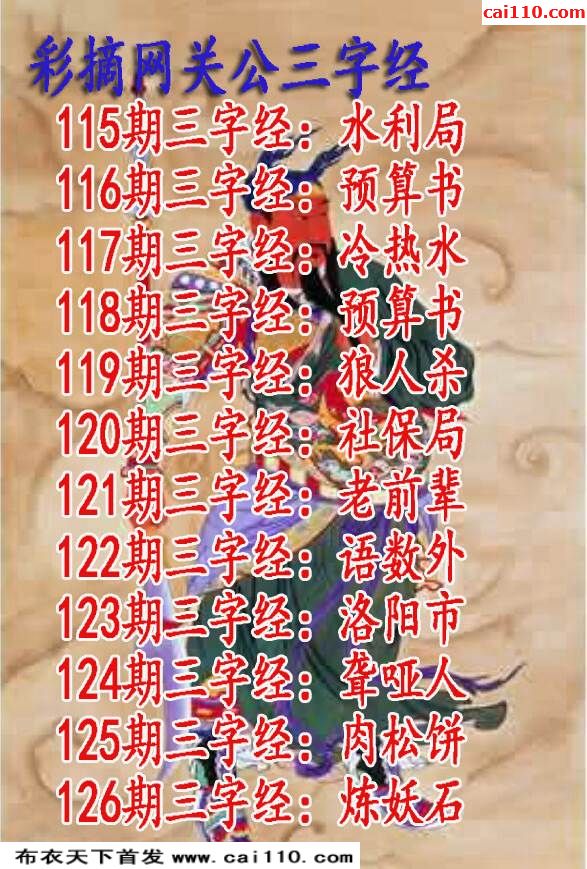 cai110.com
彩摘网关公三字经
115期三字经：水利局
116期三字经：预算书
117期三字经：冷热水
118期三字经：预算书
119期三字经：狼人杀
120期三字经：社保局
121期三字经：老前辈
122期三字经：语数外
123期三字经：洛阳市
124期三字经：聋哑人
125期三字经：肉松饼
126期三字经：炼妖石
布衣天下首发 www.cai110.com